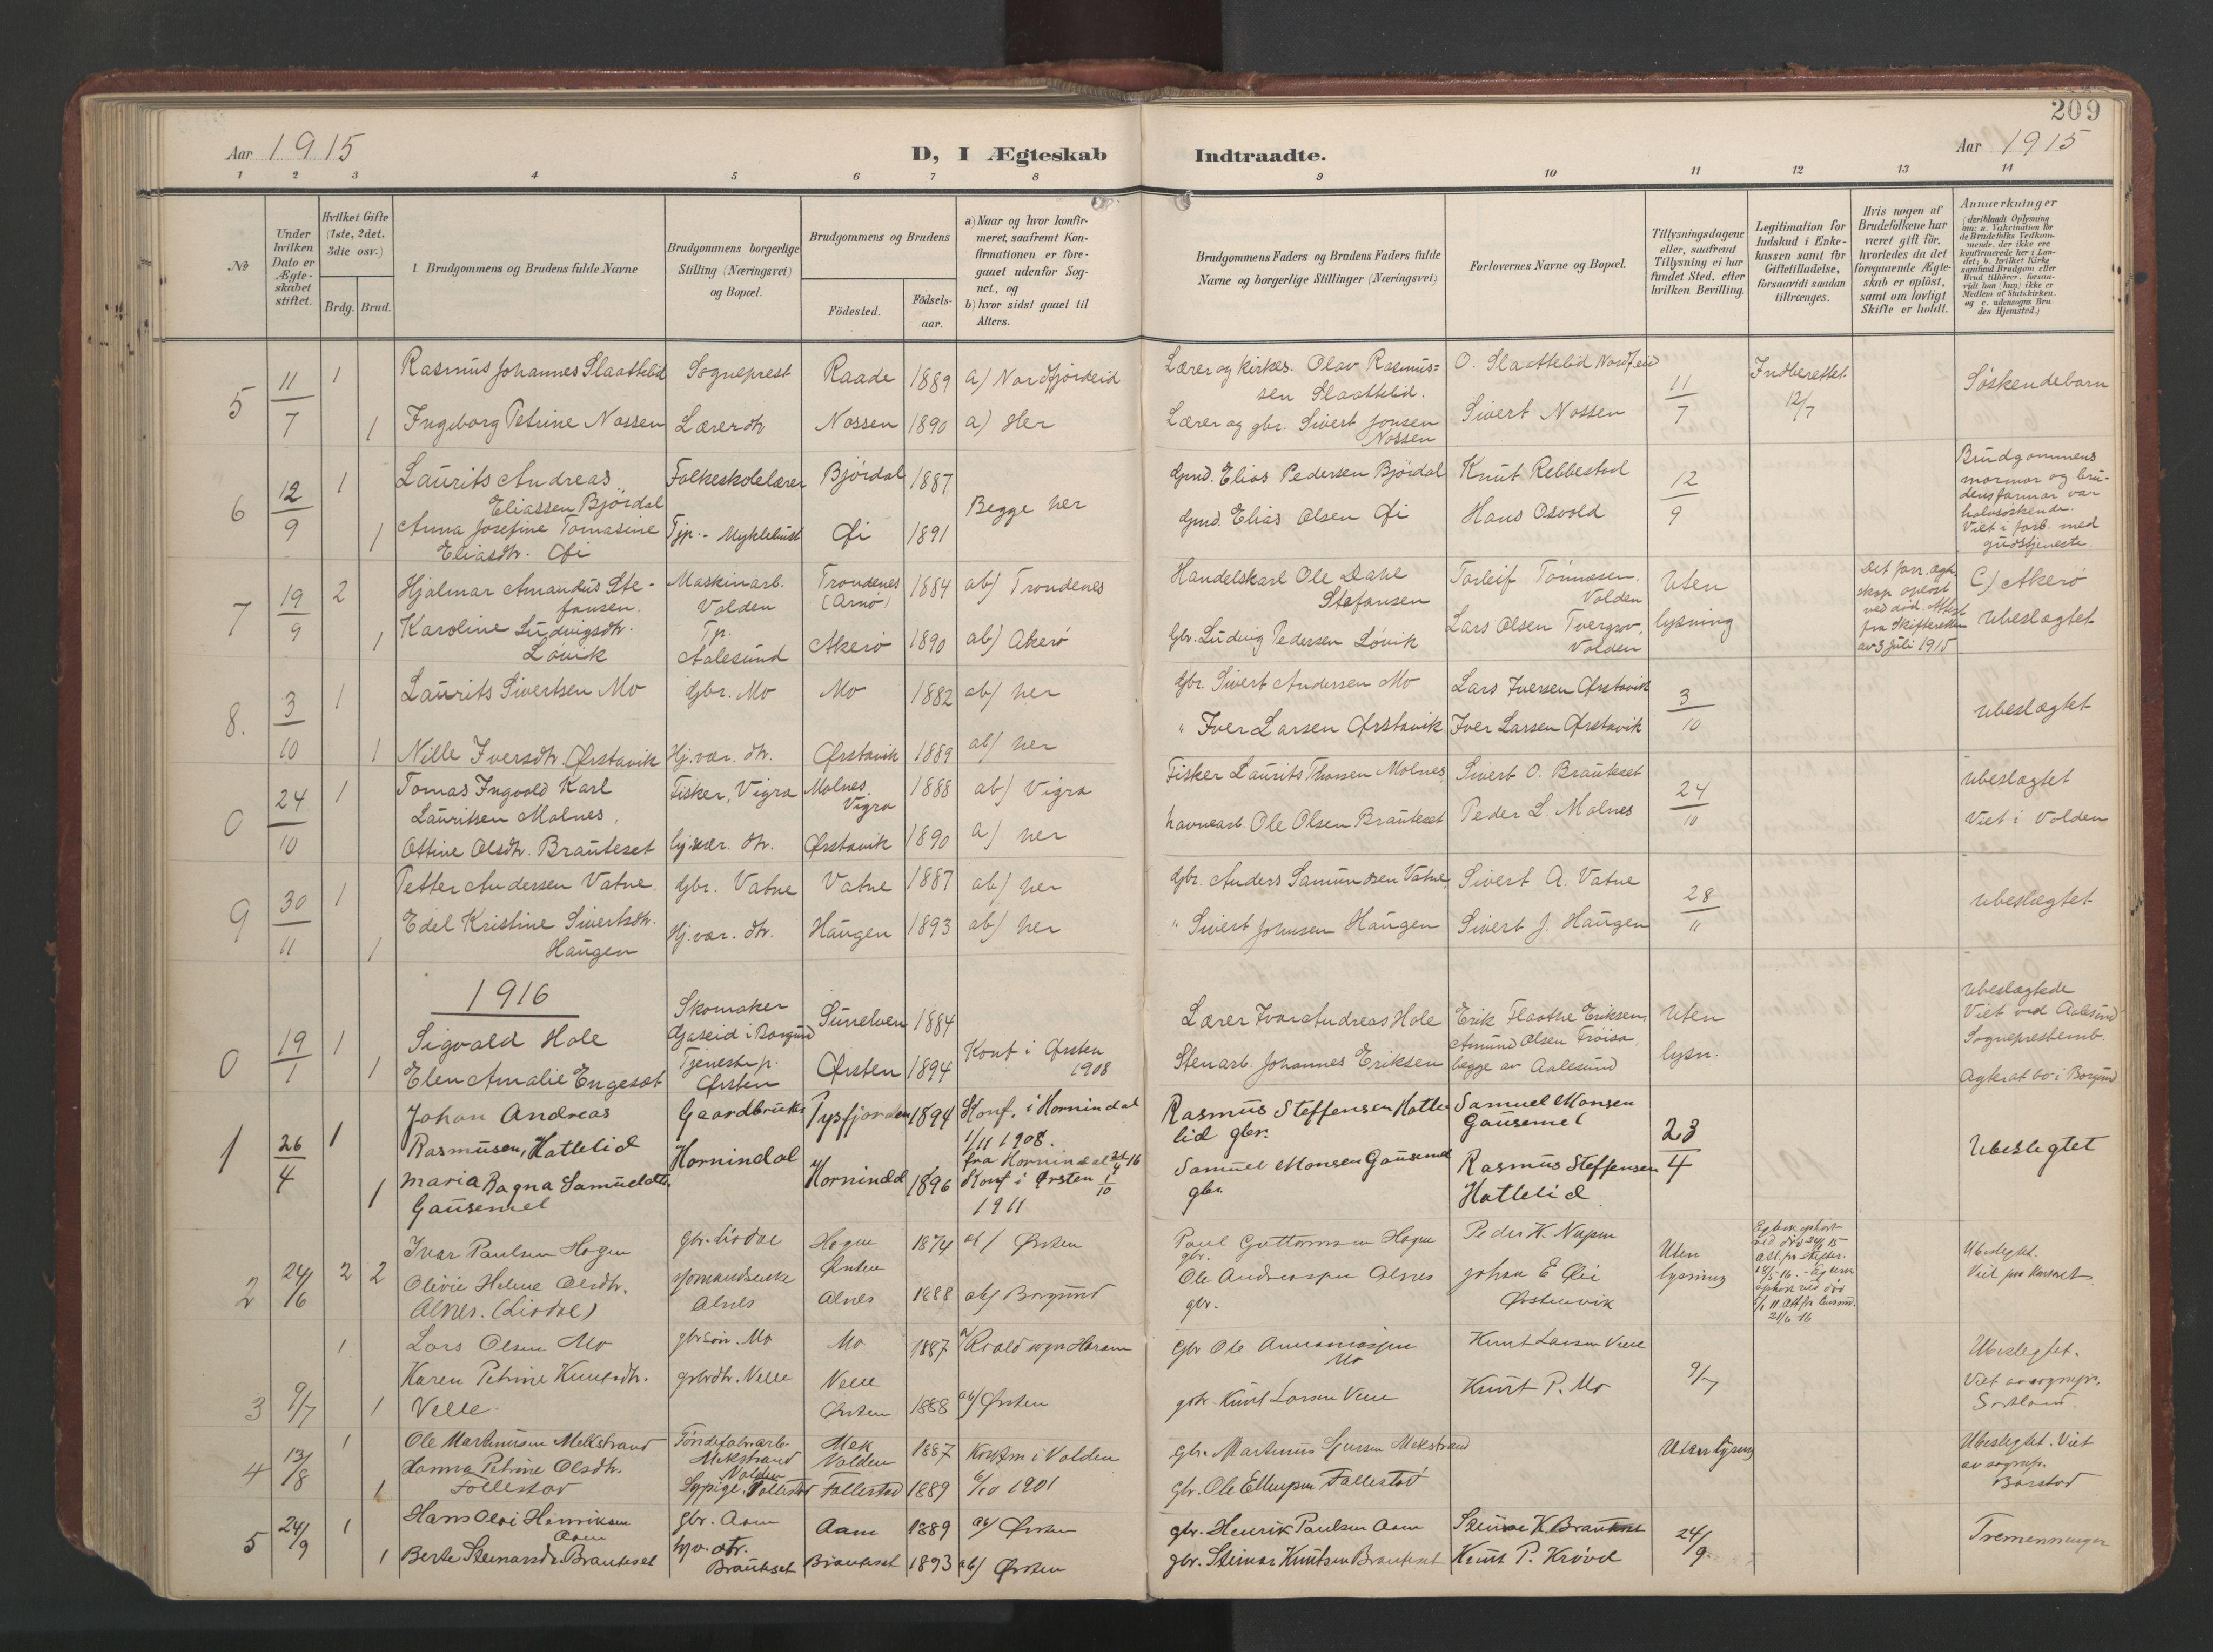 209
Aar 1915
D, I Ægteskab Indtraadte.
Aar 1915
1 2 3 4 5 6 7 8 9 10 11 12 13 14
№
Under hvilken Dato er Ægte-skabet stiftet.
Hvilket Gifte (1ste, 2det, 3die osv.)
Brdg. Brud.
Brudgommens og Brudens fulde Navne
Brudgommens borgerlige Stilling (Næringsvei) og Bopæl.
Brudgommens og Brudens
Fødested.
Fødsels-aar.
a) Naar og hvor konfir-meret, saafremt Kon-firmationen er fore-gaaet udenfor Sog-net, og
b) hvor sidst gaaet til Alters.
Brudgommens Faders og Brudens Faders fulde Navne og borgerlige Stillinger (Næringsvei)
Forlovernes Navne og Bopæl.
Tillysningsdagene eller, saafremt Tillysning ei har fundet Sted, efter hvilken Bevilling.
Legitimation for Indskud i Enke-kassen samt for Giftetilladelse, forsaavidt saadan tiltrænges.
Hvis nogen af Brudefolkene har været gift før, hvorledes da det foregaaende Ægte-skab er opløst, samt om lovligt Skifte er holdt.
Anmærkninger
5 11/7 1 Rasmus Johannes Slaattelid Sogneprest Raade 1889 a) Nordfjordeid Lærer og kirkes. Olav Rasmus= O. Slaattelid Nordfj.eid 11/7 Indberettet 12/7 Søskendebarn
sen Slaattelid.
1 Ingeborg Petrine Nossen Lærerdtr Nossen 1890 a) Her Lærer og gbr. Sivert Jonsen Nossen Sivert Nossen
6 12/9 1 Laurits Andreas Eliassen Bjørdal Folkeskolelærer Bjørdal 1887 Begge her Gmd. Elias Pedersen Bjørdal Knut Rebbestad 12/9 Brudgommens
mormor og bru-
densfarmor var
halvsøskende.
Viet i forb. med
gudstjeneste.
1 Anna Josefine Tomasine Eliasdtr. Øi Tjp. - Myklebust Øi 1891 Gmd. Elias Olsen Øi Hans Osvold
7 19/9 2 Hjalmar Amandus Ste-fansen. Maskinarb. Volden Trondenes (Arnø) 1884 ab) Trondenes Handelskarl Ole Dahl Stefansen Torleif Tomassen. Volden Uten lysning Det forr. ægte-
skap opløst
ved død. Attest
fra Skifteretten
av 3 juli 1915 C) Akerø
Ubeslægtet
1 Karoline Ludvigsdtr. Løvik Tp. Aalesund Akerø 1890 ab) Akerø Gbr. Ludvig Pedersen Løvik Lars Olsen Tvergrov, Volden
8. 3/10 1 Laurits Sivertsen Mo Gbr. Mo Mo 1882 ab) her Gbr. Sivert Andersen Mo Lars Iversen Ørstavik 3/10 Ubeslægtet
1 Nille Iversdtr. Ørstavik Hj.vær. dtr. Ørstavik 1889 ab) her " Iver Larsen Ørstavik Iver Larsen Ørstavik
0 24/10 1 Tomas Ingvald Karl Lauritsen Molnes, Fisker, Vigra Molnes. Vigra 1888 ab) Vigra Fisker Laurits Thorsen Molnes Sivert O. Brauteset 24/10 Ubeslægtet
Viet i Volden
Ottine Olsdtr. Brauteset hj.vær. dtr. Ørstavik 1890 a) her havnearb. Ole Olsen Brauteset Peder L. Molnes
9 30/11 1 Petter Andersen Vatne. Gbr. Vatne Vatne 1887 ab) her Gbr. Anders Samundsen Vatne Sivert A. Vatne 28/11 Ubeslægtet
1 Edel Kristine Sivertsdtr. Haugen Hj.vær. dtr. Haugen 1893 ab) her " Sivert Johnsen Haugen Sivert J. Haugen
1916
0 19/1 1 Sigvald Hole Skomaker Gjaseid i Borgund Sunelven 1884 Lærer Ivar Andreas Hole Erik Flaathe Eriksen, Uten lysn. Ubeslægtede
Viet ved Aalesund
Sogneprestemb.
Agter at bo i Borgund
1 Elen Amalie Engeset Tjenestep. Ørsten Ørsten 1894 Konf i Ørsten 1908 Stenarb. Johannes Eriksen Amund Olsen Frøisa, begge av Aalesund
1 26/4 1 Johan Andreas Rasmusen, Hattelid Gaardbruker Hornindal Tysfjorden 1894 Konf. i Hornindal 1/11 1908. Rasmus Steffensen Hatte-lid gbr. Samuel Monsen Gausemel 23/4 Ubeslegtet
1 Maria Ragna Samuelsdtr. Gausemel Hornindal 1896 Konf i Ørsten 1/10 1911 Samuel Monsen Gausemel gbr. Rasmus Steffensen Hattelid
2 24/6 2 2 Ivar Paulsen Hogen gbr. Lisdal Ørsten 1874 ab) Ørsten Paul Guttormsen gbr. Peder K. Uten lysning Ubeslegtet.
Viet paa Kontoret.
Olivie Helene Olsdtr. Alnes. (Lisdal) Alnes Alnes 1888 ab) Borgund Ole Andreassen Alnes gbr. Johan E Øie Ørstenvik
3 9/7 1 Lars Olsen Mo gbr.søn. Mo Mo 1887 a) Roald sogn Haram Gbr Ole Mo Knut Larsen Velle 9/7 Ubeslegtet.
Viet av sognepr.
1 Karen Petrine Knutsdtr. Velle gbrdtr. Velle Velle Ørsten 1888 ab) Ørsten gbr. Knut Larsen Velle Knut P. Mo
4 13/8 1 Ole Martinusen Mekstrand Tøndefabr.arb. Mekstrand Volden Mek Volden 1887 Konfm i Volden gbr. Martinus Sjursen Mekstrand Uten lysning Ubeslegtet. Viet
av sognepr.
Barstad
1 Hanna Petrine Olsdtr. Follestad Sypige. Follestad Follestad 1889 6/10 1901 Gbr. Ole Ellingsen Follestad
5 24/9 1 Hans Olai Henriksen Aam gbr. Aam Aam 1889 ab) Ørsten gbr. Henrik Paulsen Aam Steinar K. Brauteset 24/9 Tremenninger
1 Berte Steinarsdtr. Brauteset hjv. dtr. Brauteset Brauteset 1893 ab) Ørsten gbr. Steinar Knutsen Brauteset Knut P. Krøvel